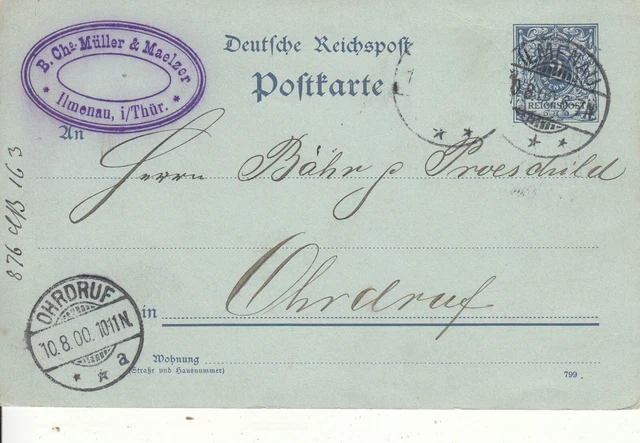 B. Chs. Müller & Maelzer
* Ilmenau, i/Thür. *
Deutsche Reichspost
Postkarte
ILMENAU
10.8.
N
REICHSPOST
* *
* *
An
Herrn Bähr & Proeschild
876 163
Ohrdruf
in
OHRDRUF
10.8.00.10-11N.
* * a
Wohnung
(Straße und Hausnummer)
799.